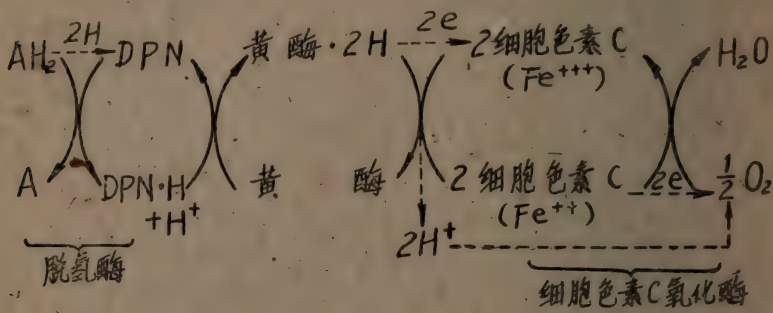 AH₂ 2H DPN 黄酶·2H 2e 2细胞色素C H₂O
(Fe⁺⁺⁺)
A DPN·H 黄 酶 2细胞色素C 2e ½O₂
+H⁺ (Fe⁺⁺)
2H⁺
脱氢酶
细胞色素C氧化酶